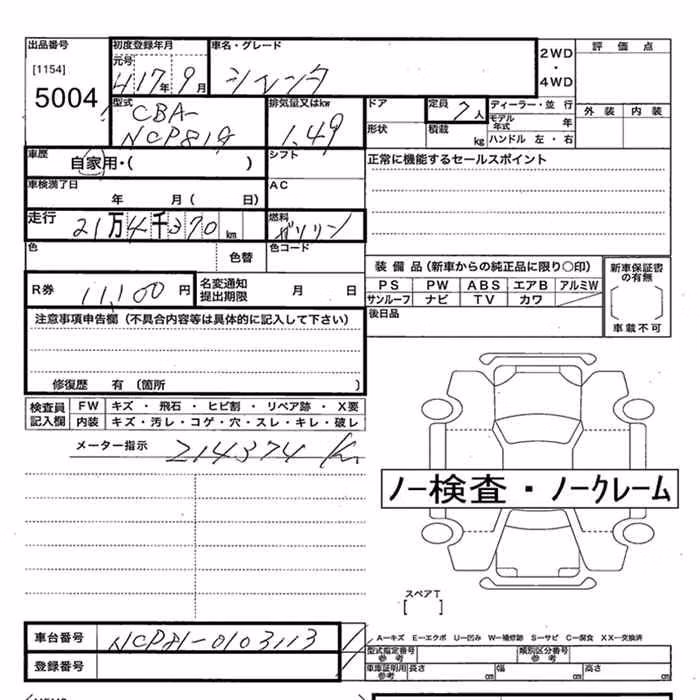 出品番号
[1154]
5004
初度登録年月
元号
H17年 9月
車名・グレード
シエンタ
2WD
・
4WD
評価点
外装 内装
型式
CBA-
NCP81G
排気量又はkw
1.49
ドア
定員 7人
形状
積載 kg
ディーラー・並行
モデル年式 年
ハンドル 左・右
車歴
自家用・( )
シフト
正常に機能するセールスポイント
車検満了日
年 月( 日)
AC
走行
21万4千370km
燃料
ガソリン
色
色替
色コード
R券 11,100円
名変通知
提出期限
月 日
装備品(新車からの純正品に限り○印)
PS PW ABS エアB アルミW
サンルーフ ナビ TV カワ
後日品
新車保証書
の有無
車載不可
注意事項申告欄(不具合内容等は具体的に記入して下さい)
修復歴 有(箇所 )
検査員
記入欄
FW キズ・飛石・ヒビ割・リペア跡・X要
内装 キズ・汚レ・コゲ・穴・スレ・キレ・破レ
メーター指示 214374 km
ノー検査・ノークレーム
スペアT
[ ]
車台番号 NCP81-0103113
登録番号
A―キズ E―エクボ U―凹み W―補修跡 S―サビ C―腐食 XX―交換済
型式指定番号
参考
類別区分番号
参考
車庫証明用
参考
長さ cm 幅 cm 高さ cm